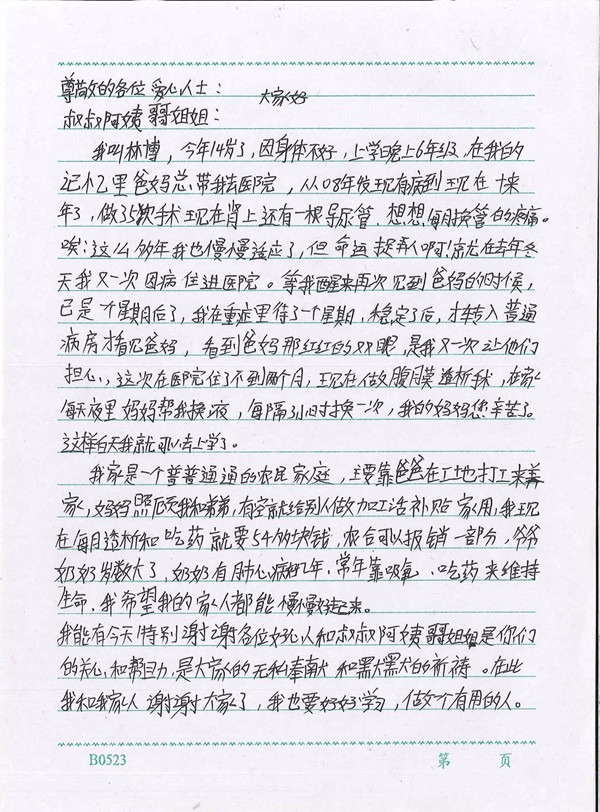 尊敬的各位爱心人士：
大家好
叔叔阿姨哥姐姐：
我叫林博，今年14岁了，因身体不好，上学晚上6年级，在我的
记忆里爸妈总带我去医院，从08年发现有病到现在十来
年了，做35次手术现在肾上还有一根导尿管，想想每月换管的疼痛。
唉：这么多年我也慢慢适应了，但命运捉弄人啊！就在去年冬
天我又一次因病住进医院。等我醒来再次见到爸妈的时候，
已是一个星期后了，我在重症里待了一个星期，稳定了后，才转入普通
病房才看见爸妈，看到爸妈那红红的双眼，是我又一次让他们
担心，这次在医院住了不到两个月，现在做腹膜透析手术，在家
每天夜里妈妈帮我换液，每隔3小时换一次，我的妈妈您辛苦了。
这样白天我就可以去上学了。
我家是一个普普通通的农民家庭，主要靠爸爸在工地打工来养
家，妈妈照顾我和弟弟，有空就给别人做加工活补贴家用，我现
在每月透析和吃药就要54多块钱，农合可以报销一部分，爷爷
奶奶岁数大了，奶奶有肺心病几年，常年靠吸氧、吃药来维持
生命，我希望我的家人都能慢慢好起来。
我能有今天！特别谢谢各位好心人和叔叔阿姨哥姐姐是你们
的关心和帮助，是大家的无私奉献和默默的祈祷。在此
我和我家人谢谢大家了，我也要好好学习，做个有用的人。
B0523 第 页